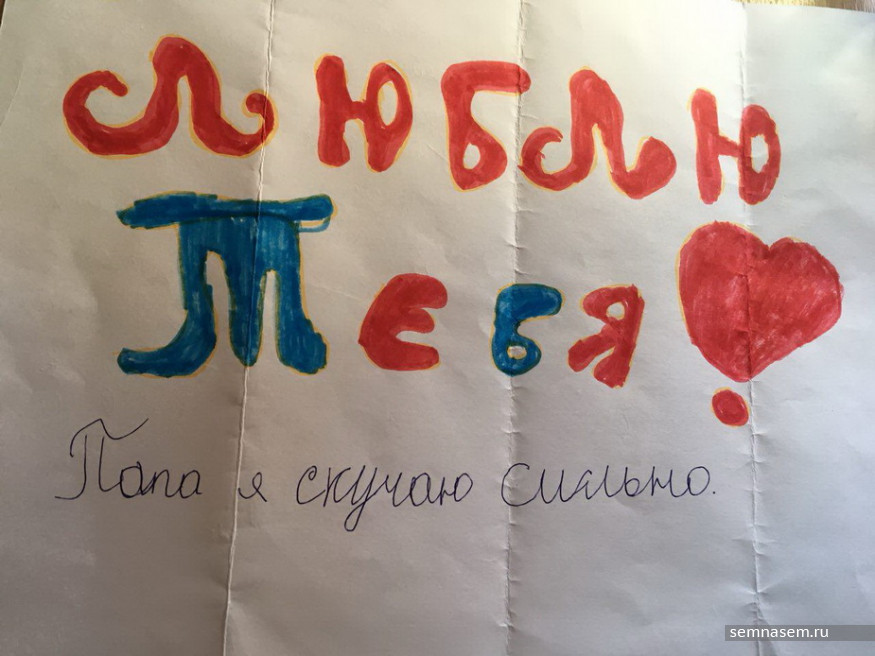 ЛЮБЛЮ
Тебя
Папа я скучаю сильно.
semnasem.ru